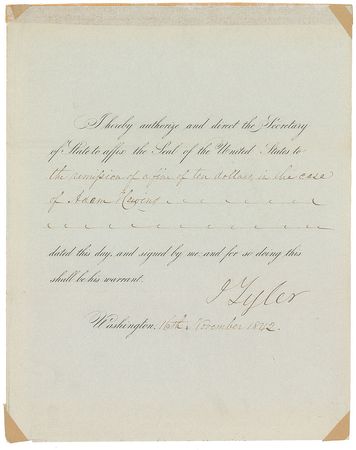 I hereby authorize and direct the Secretary
of State to affix the Seal of the United States to
the remission of a fine of ten dollars, in the case
of Adam
dated this day, and signed by me; and for so doing this
shall be his warrant.
J Tyler
Washington, 16th. November 1842.